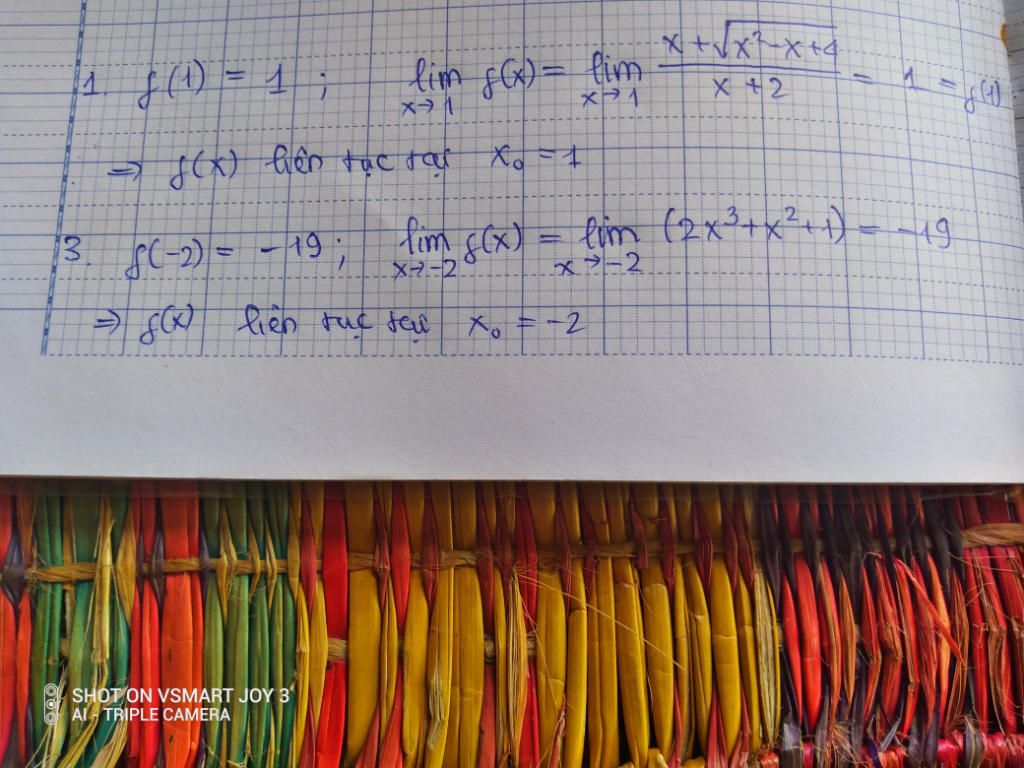 1. f(1) = 1 ; lim x→1 f(x) = lim x→1 (x + √(x² - x + 4))/(x + 2) = 1 = f(1)
⇒ f(x) liên tục tại x₀ = 1
3. f(-2) = -19 ; lim x→-2 f(x) = lim x→-2 (2x³ + x² + 1) = -19
⇒ f(x) liên tục tại x₀ = -2
SHOT ON VSMART JOY 3
AI - TRIPLE CAMERA